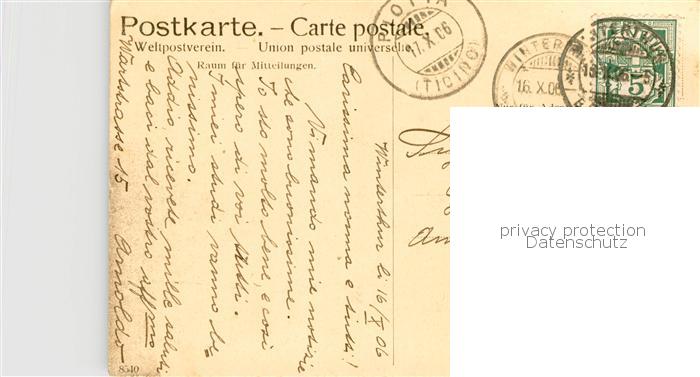 Postkarte. – Carte postale.
Weltpostverein. Union postale universelle.
Raum für Mitteilungen.
PIOTTA
17.X.06
(TICINO)
WINTER
16.X.06
WINTERTHUR
5
Winterthur li 16/X 06
Carissima nonna e tutti!
Vi mando mie notizie
che sono buonissime.
Io sto molto bene, e così
spero di voi tutti.
I miei studi vanno be
nissimo.
Addio, ricevete mille saluti
e baci dal vostro aff.mo
Arnoldo
Wartstrasse 15
8540
privacy protection
Datenschutz